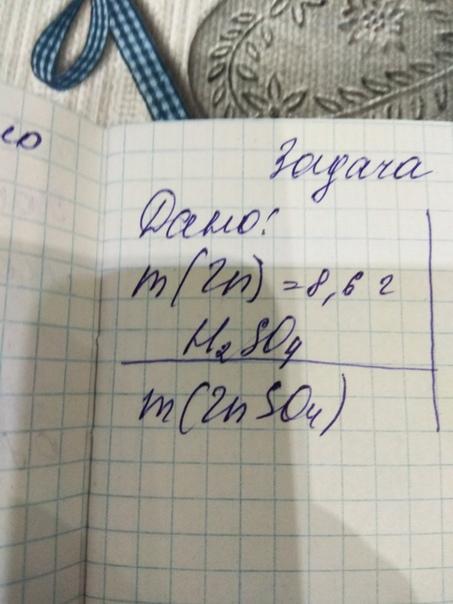 ю
Задача
Дано:
m(Zn) = 8,6 г
H₂SO₄
m(ZnSO₄)